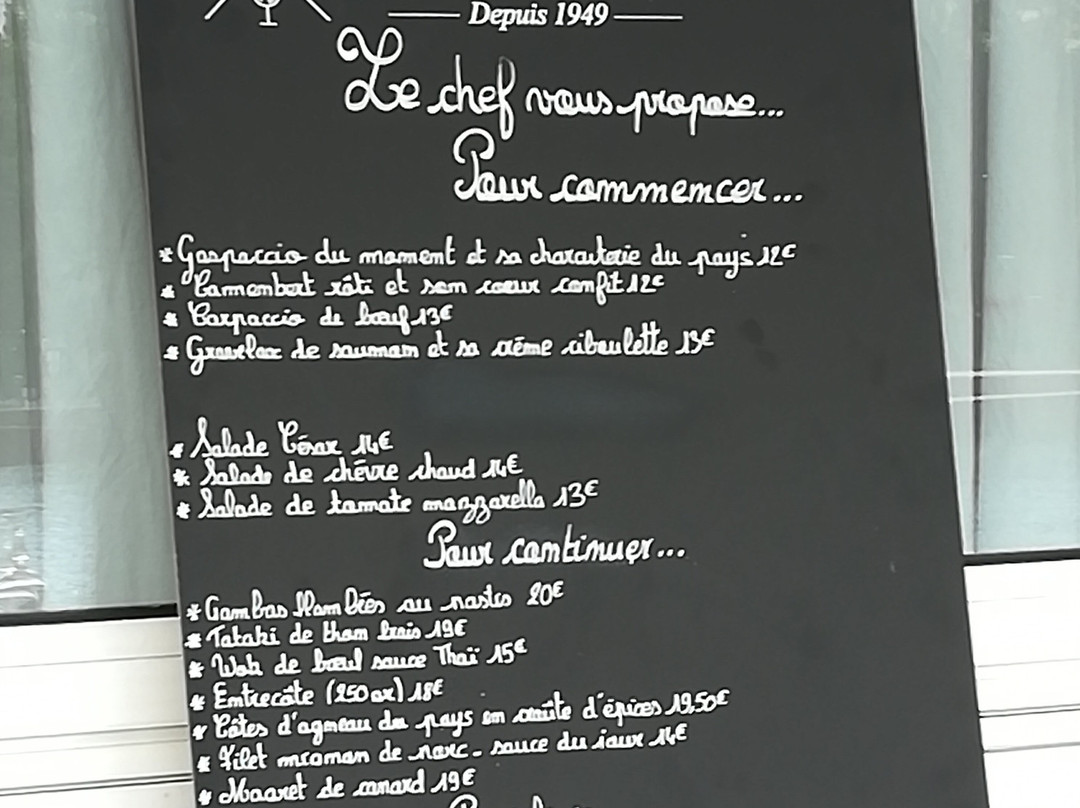 Depuis 1949
Le chef vous propose...
Pour commencer...
* Gaspaccio du moment et sa charcuterie du pays 12€
* Camembert rôti et son coeur confit 12€
* Carpaccio de bœuf 13€
* Gravelax de saumon et sa crème ciboulette 13€
* Salade César 14€
* Salade de chèvre chaud 14€
* Salade de tomate mozzarella 13€
Pour continuer...
* Gambas flambées au pastis 20€
* Tataki de thon frais 19€
* Wok de bœuf sauce Thaï 15€
* Entrecôte (250gr) 18€
* Côtes d'agneau du pays en croûte d'épices 19,50€
* Filet mignon de porc - sauce du jour 14€
* Magret de canard 19€